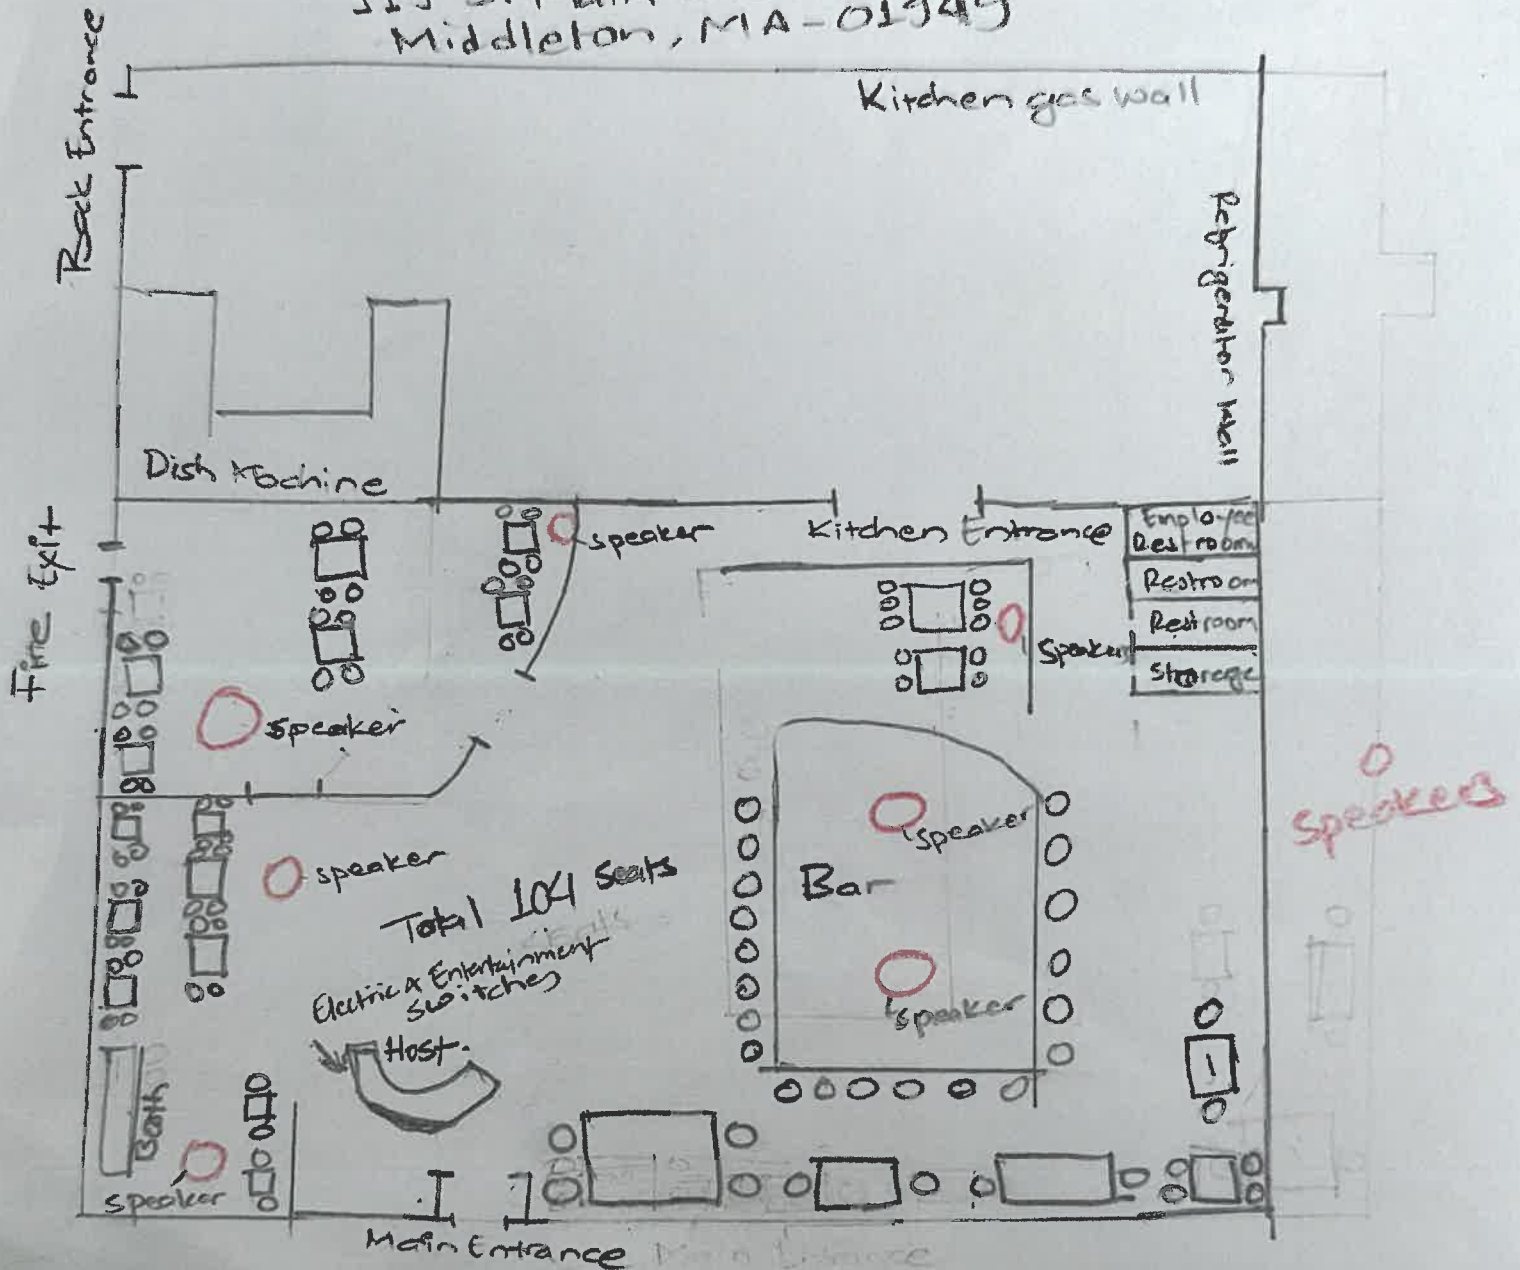 Middleton, MA-01949
Back Entrance
Kitchen gas wall
Refrigerator Wall
Dish Machine
Fire Exit
speaker
Kitchen Entrance
Employee
Restroom
Restroom
Restroom
Storage
Speaker
speaker
speaker
Speakers
speaker
Bar
Total 104 Seats
Electric & Entertainment
switches
speaker
Host.
speaker
Main Entrance
Main Entrance